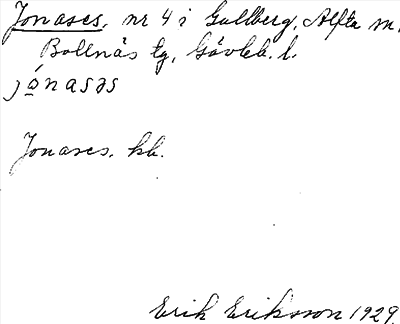 Jonases, nr 4 i Gullberg, Alfta sn,
Bollnäs tg, Gävleb. l.
jónasəs
Jonases. kb.
Erik Eriksson 1929.